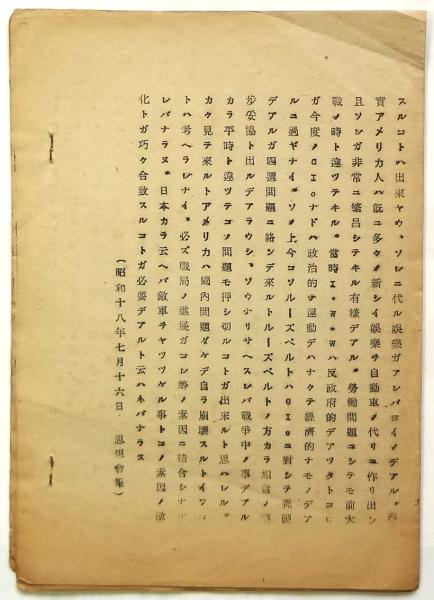 スルコトハ出来ヤウ。ソレニ代ル娯楽ガアレバヨイノデアル。事
實アメリカ人ハ既ニ多クノ新シイ娯楽ヲ自動車ノ代リニ作リ出シ
且ソレガ非常ニ繁昌シテヰル有様デアル。勞働問題ニシテモ前大
戰ノ時ト違ツテヰル。當時I・W・Wハ反政府的デアツタトコロ
ガ今度ノCIOナドハ政治的ナ運動デハナクテ經濟的ナモノデア
ルニ過ギナイ。ソノ上今コソルーズベルトハCIOニ對シテ強硬
デアルガ四選問題ニ絡ンデ來ルトルーズベルトノ方カラ相當ノ
歩妥協ト出ルデアラウシ、ソウナリサヘスレバ戰爭中ノ事デアル
カラ平時ト違ツテコノ問題モ押シ切ルコトガ出來ルト思ハレル。
カク見テ來ルトアメリカハ國内問題ダケデ自ラ崩壊スルトイフコ
トハ考ヘラレナイ。必ズ戰局ノ進展ガコレ等ノ素因ニ結合シナケ
レバナラヌ。日本カラ云ヘバ敵軍ヲヤツツケル事トコノ素因ノ激
化トガ巧ク合致スルコトガ必要デアルト云ハネバナラヌ
(昭和十八年七月十六日 思想會報)